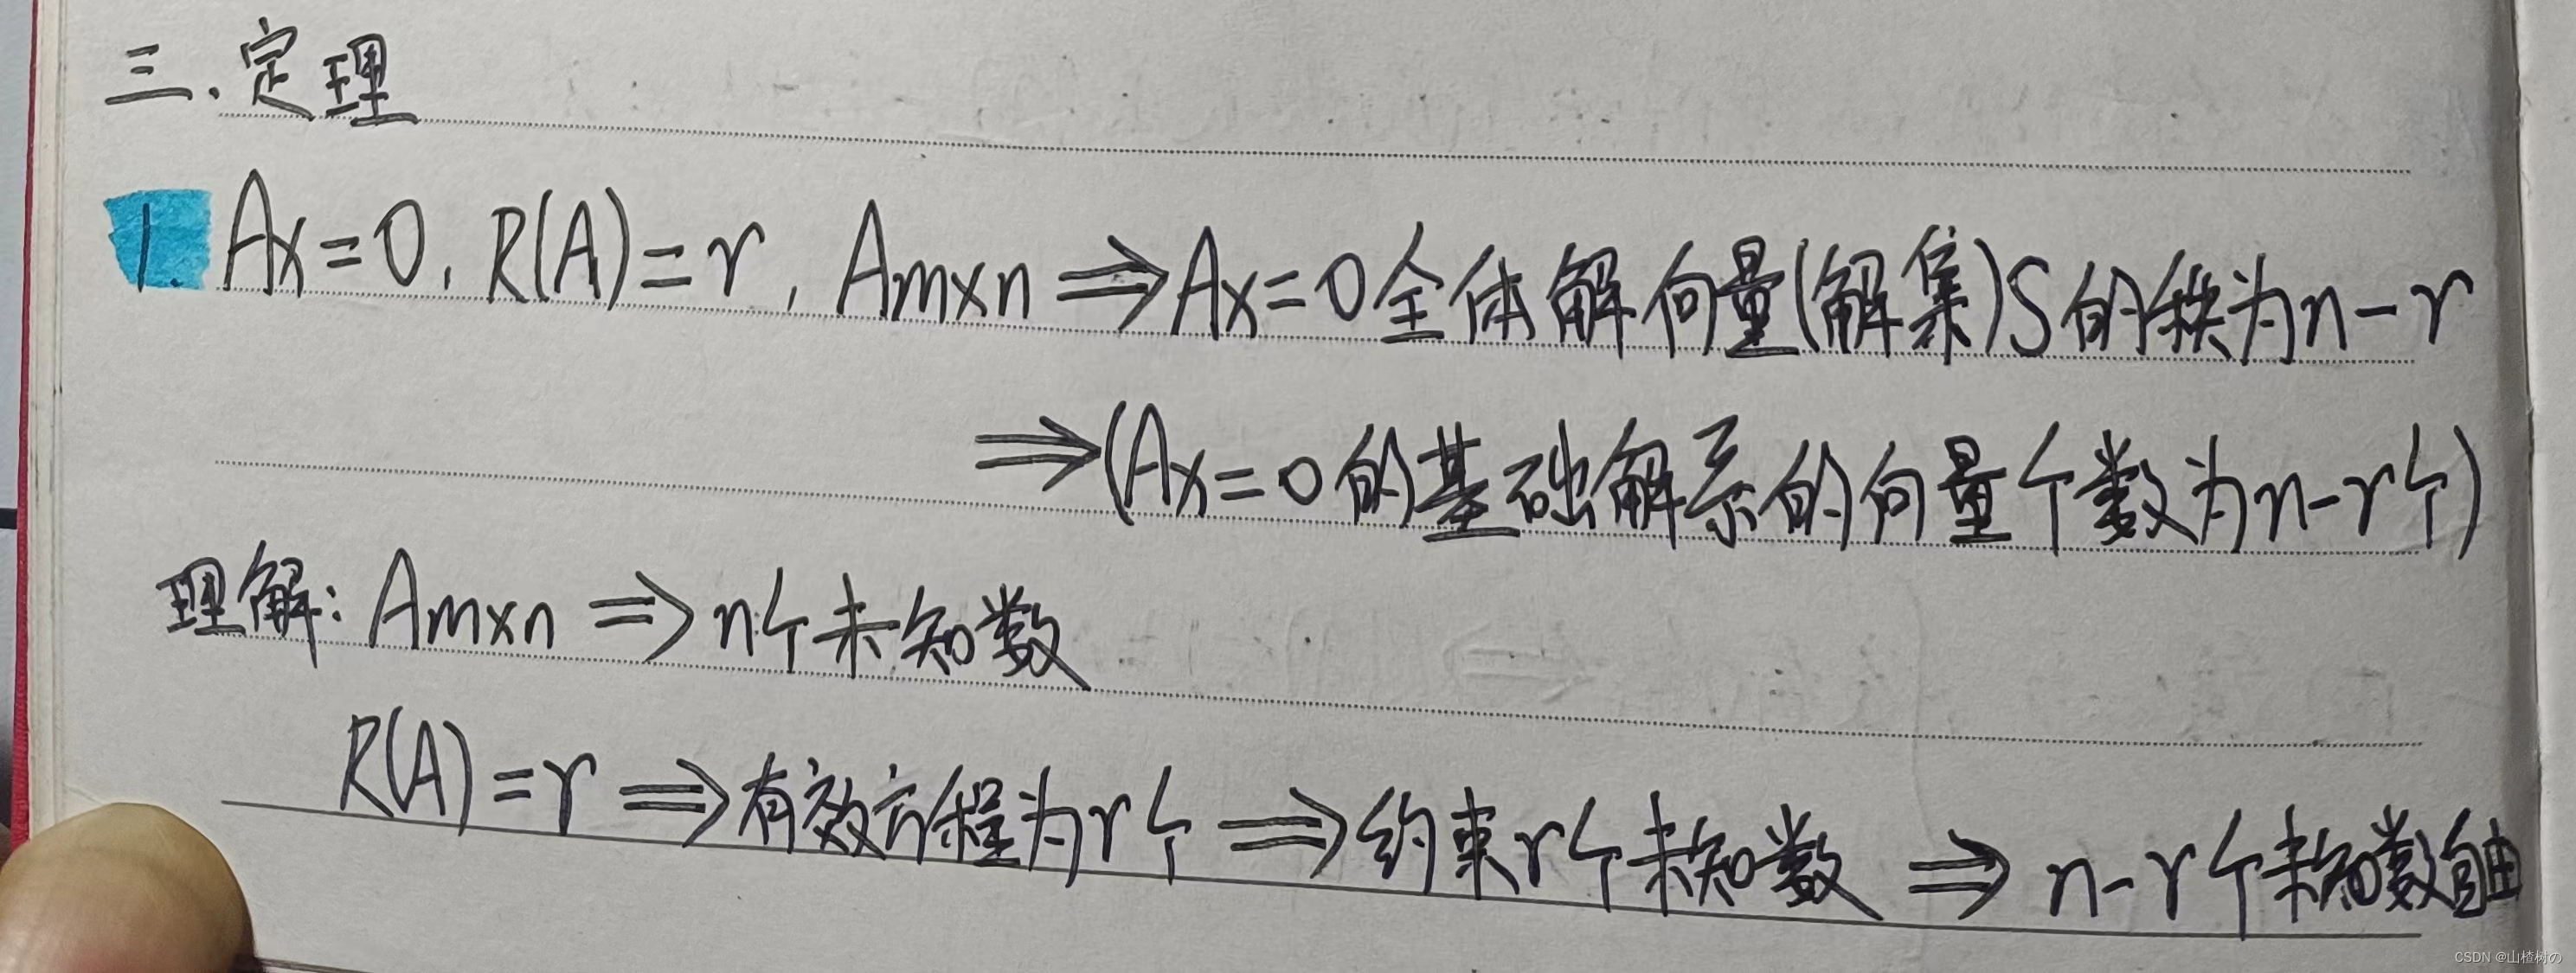 三.定理
1. Ax=0, R(A)=r, Am×n⇒Ax=0全体解向量(解集)S的秩为n-r
⇒(Ax=0的基础解系的向量个数为n-r个)
理解: Am×n⇒n个未知数
R(A)=r⇒有效方程为r个⇒约束r个未知数⇒n-r个未知数自由
CSDN @山楂树の